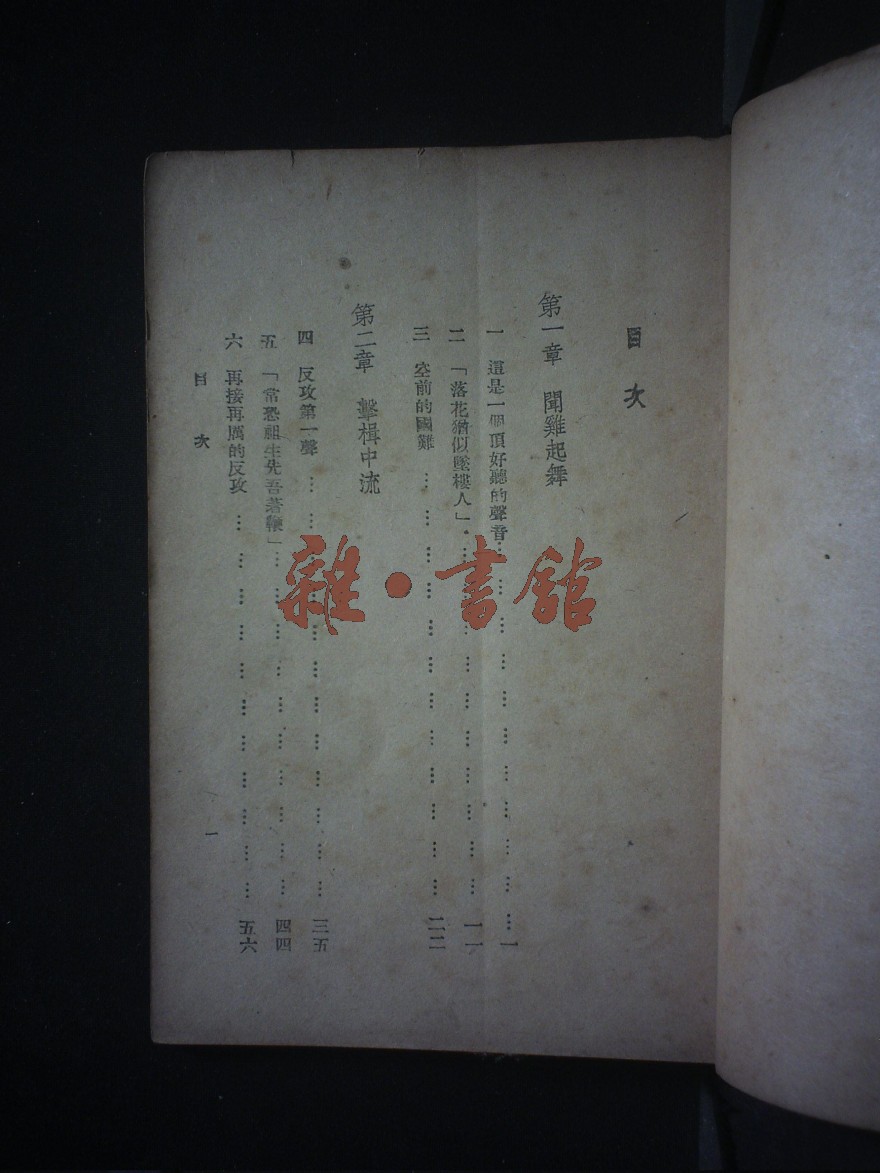 目次
第一章 聞雞起舞
一 這是一個頂好聽的聲音………………………………一
二 「落花猶似墜樓人」………………………………一一
三 空前的國難………………………………二二
第二章 擊楫中流
四 反攻第一聲………………………………三五
五 「常恐祖生先吾著鞭」………………………………四四
六 再接再厲的反攻………………………………五六
目次 一
雜·書館